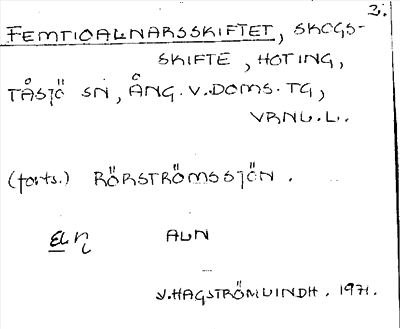 2.
FEMTIOALNARSSKIFTET, SKOGS-
SKIFTE, HOTING,
TÅSJÖ SN, ÅNG. V. DOMS. TG,
VRNL. L..
(forts.) RÖRSTRÖMSSJÖN.
ALN
V. HAGSTRÖM LINDH. 1971.